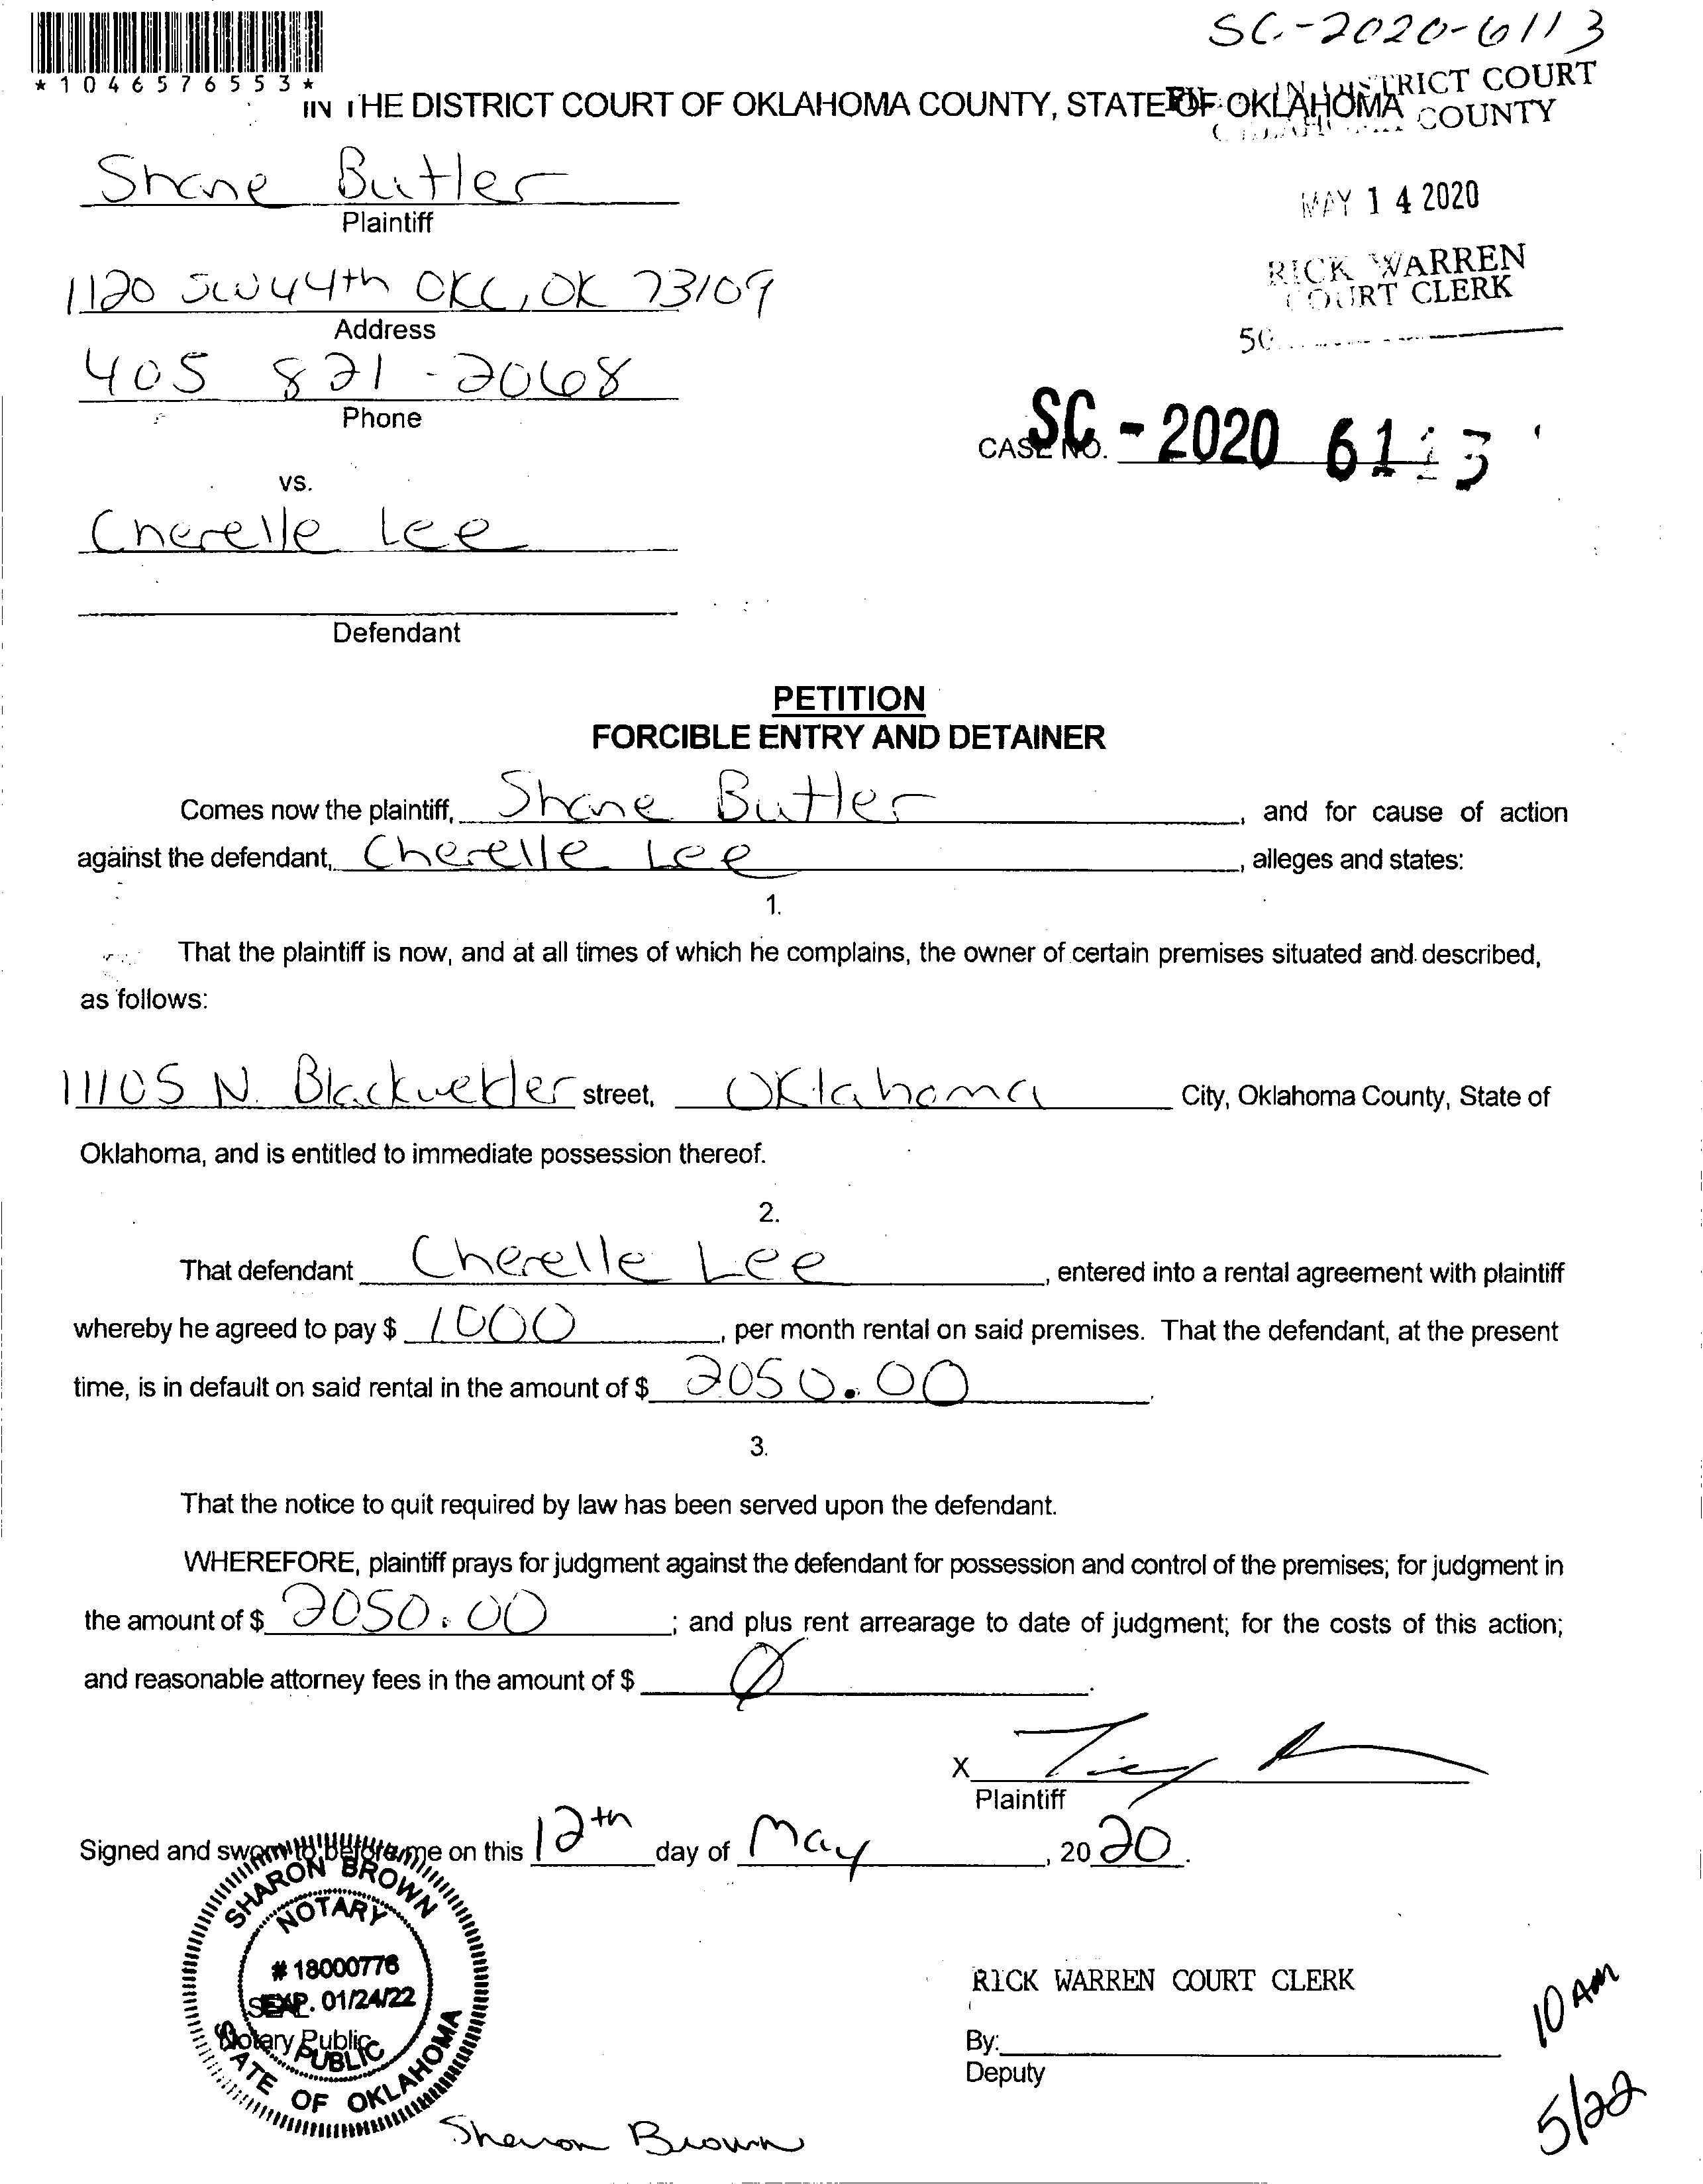 SC-2020-6113
*1046576553*
IN THE DISTRICT COURT OF OKLAHOMA COUNTY, STATE OF OKLAHOMA
IN DISTRICT COURT
COUNTY
Shane Butler
Plaintiff
MAY 14 2020
1120 SW 44th OKC, OK 73109
Address
RICK WARREN
COURT CLERK
405 821-2068
Phone
CASE NO. SC - 2020 6113
vs.
Cherelle Lee
Defendant
PETITION
FORCIBLE ENTRY AND DETAINER
Comes now the plaintiff, Shane Butler, and for cause of action
against the defendant, Cherelle Lee, alleges and states:
1.
That the plaintiff is now, and at all times of which he complains, the owner of certain premises situated and described,
as follows:
11105 N. Blackwelder street, Oklahoma City, Oklahoma County, State of
Oklahoma, and is entitled to immediate possession thereof.
2.
That defendant Cherelle Lee, entered into a rental agreement with plaintiff
whereby he agreed to pay $ 1000, per month rental on said premises. That the defendant, at the present
time, is in default on said rental in the amount of $ 2050.00.
3.
That the notice to quit required by law has been served upon the defendant.
WHEREFORE, plaintiff prays for judgment against the defendant for possession and control of the premises; for judgment in
the amount of $ 2050.00; and plus rent arrearage to date of judgment; for the costs of this action;
and reasonable attorney fees in the amount of $ Ø.
X
Plaintiff
Signed and sworn to before me on this 12th day of May, 2020.
SHARON BROWN
NOTARY
# 18000776
EXP. 01/24/22
SEAL
Notary Public
PUBLIC
STATE OF OKLAHOMA
RICK WARREN COURT CLERK
By:
Deputy
10 AM
5/22
Sharon Brown